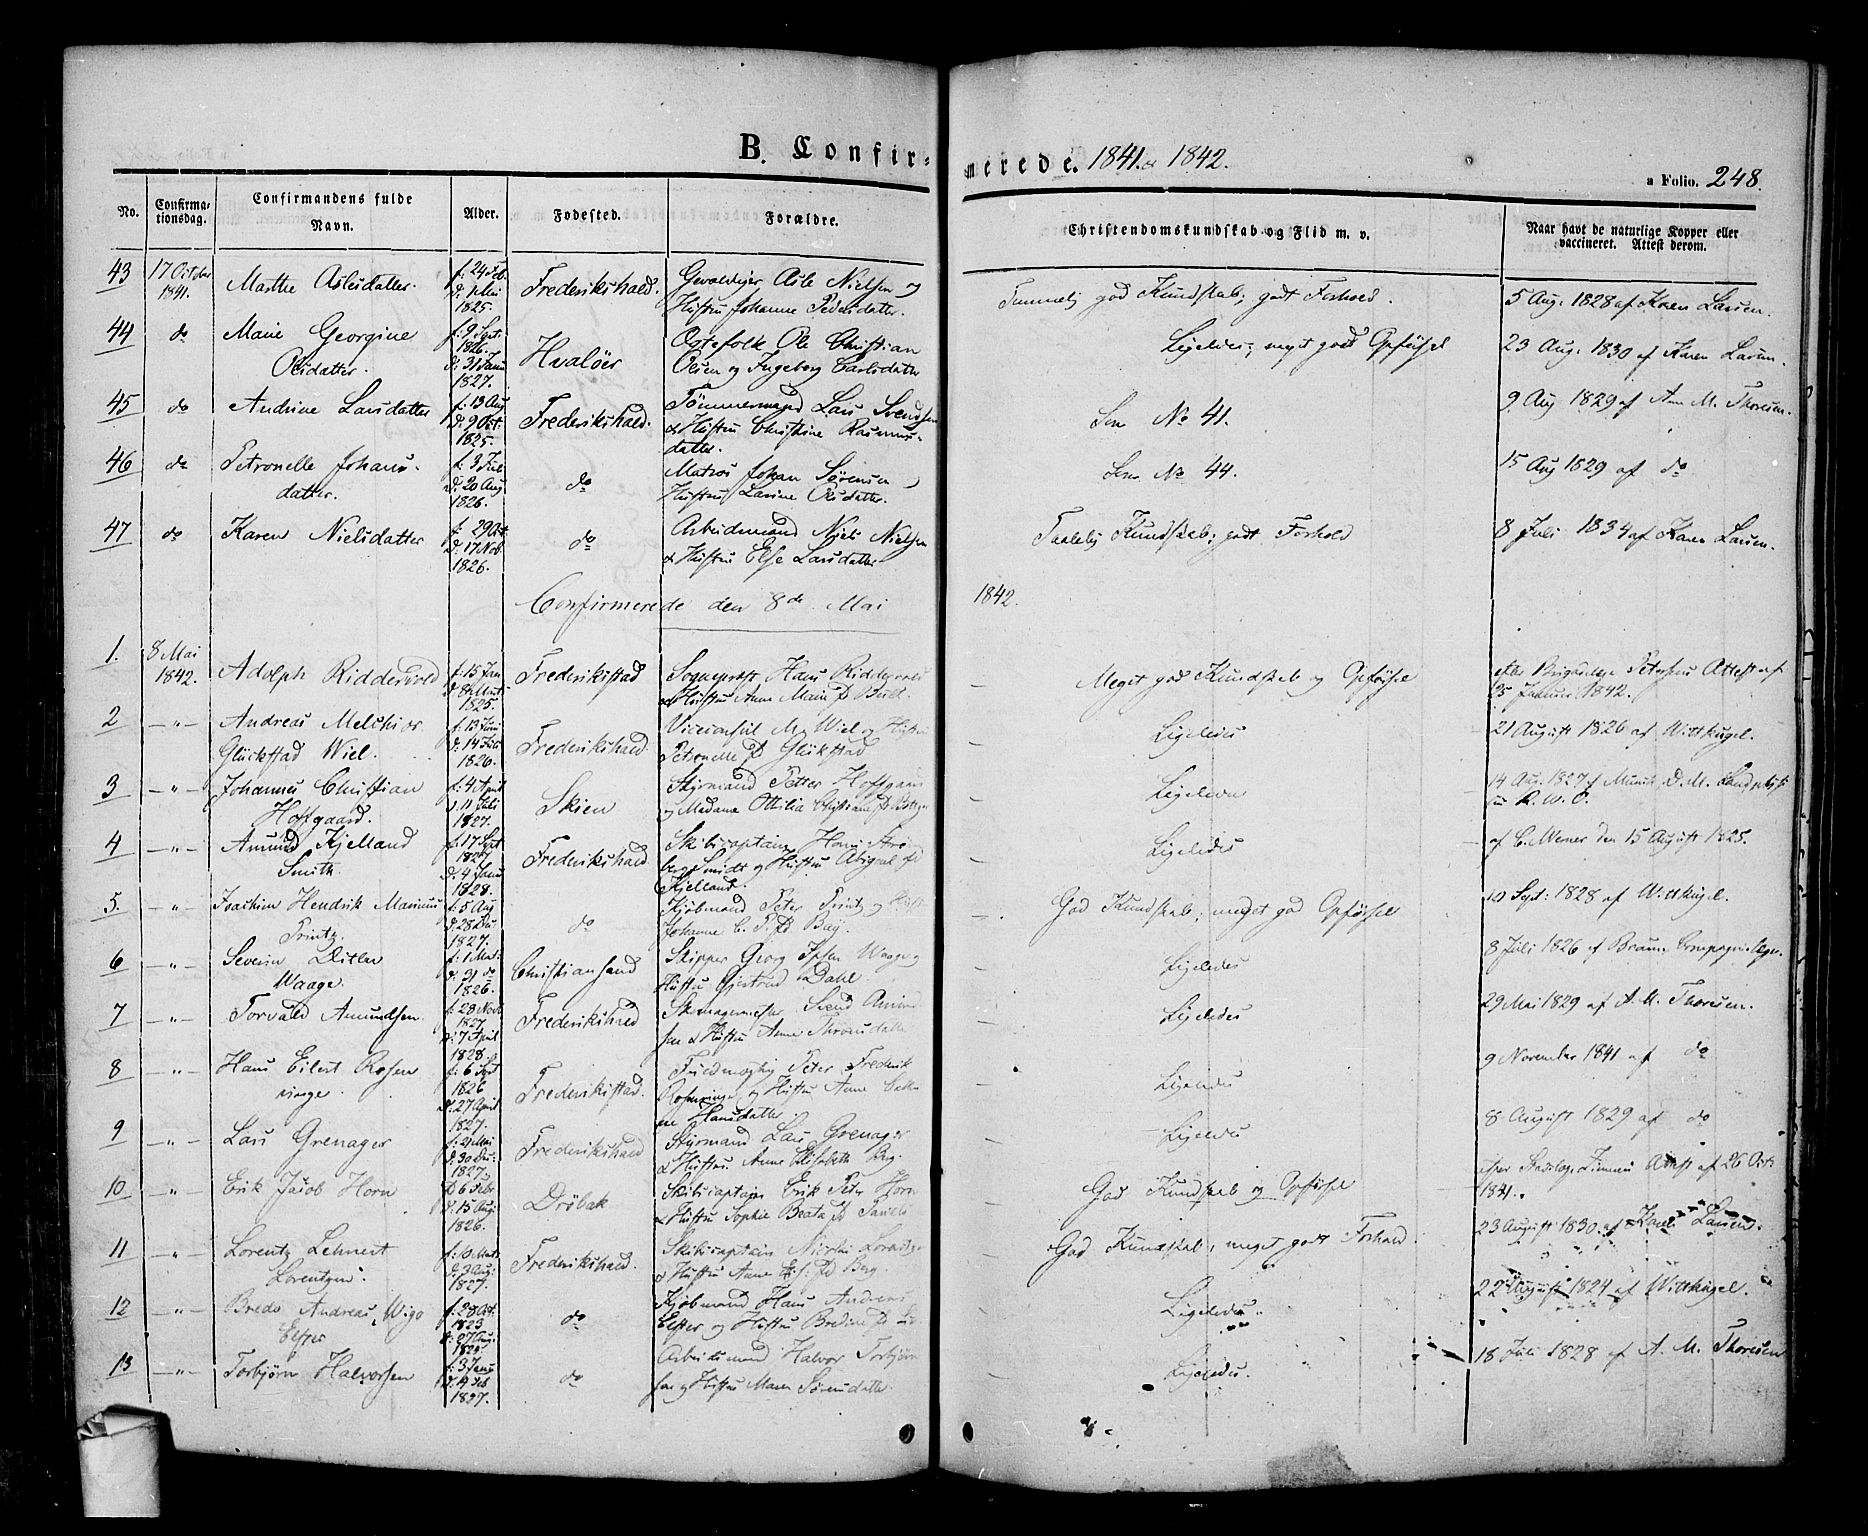 B. Confir-
merede. 1841. & 1842.
a Folio. 248.
No. Confirma-tionsdag. Confirmandens fulde Navn. Alder. Fødested. Forældre. Christendomskundskab og Flid m. v. Naar havt de naturlige Kopper eller vaccineret. Attest derom.
43 17 October 1841. Marthe Aslesdatter. f. 24 Feb. d. 1 Mai 1825. Frederikshald. Gevaldiger Asle Nielsen og Hustru Johanne Pedersdatter. Temmelig god Kundskab; godt Forhold. 5 Aug. 1828 af Karen Larsen.
44 do Marie Georgine Olsdatter. f. 9 Sept. 1826. d. 31 Janu 1827. Hvaløer Ole Christian Olsen og Ingeborg Carlsdatter Ligeledes; meget god Opførsel 23 Aug: 1830 af Karen Larsen.
45 do Andrine Larsdatter f. 13 Aug d. 9 Okt. 1825. Frederikshald. Tømmermand Lars Svendsen & Hustru Christine Rasmus-datter. Som No 41. 9 Aug 1829 af Ane M. Thoresen.
46 do Petronelle Johans-datter. f. 3 Jul d. 20 Aug 1826. do Matros Johan Sørensen, Hustru Larine Olsdatter. Som No 44. 15 Aug 1829 af do
47 do Karen Nielsdatter f. 29 Okt d. 17 Nov 1826. do Arbeidsmand Niels Nielsen & Hustru Else Larsdatter Taalelig Kundskab; godt Forhold 8 Juli 1834 af Karen Larsen.
Confirmerede den 8de Mai 1842.
1. 8 Mai 1842. Adolph Riddervold f. 15 Jan 1825. Frederikstad Sogneprest Hans Riddervold & Hustru Anne Marie f. Bull. Meget god Kundskab og Opførsel efter Attest af 1842.
2 —"— Andreas Melchior Glückstad Wiel. f. 13 Juni d. 14 Juli 1826. Frederikshald. Viceconsul M. Wiel og Hustru Petronelle f. Glückstad Ligeledes 21 August 1826 af Wittkugel.
3 —"— Johannes Christian Hoffgaard. f. 4 April d. 11 Juli 1827. Skien Styrmand Petter Hoffgaard og Madame Ottilia Ligeledes 14 Aug. 1827 af Munch D. M. R. W. O.
4 —"— Amund Kjelland Smith. f. 17 Sept 1827 d. 4 Janu 1828. Frederikshald Skibscaptain Hans Smidt og Hustru Abigael fd Kjelland. Ligeledes af C. Werner den 15 August 1825.
5. —"— Joachim Hendrik Marinus Printz. f. 5 Aug d. 28 Dec 1827. do Kjøbmand Peter Printz og Hust Johanne C. P. fd Bay. God Kundskab; meget god Opførsel 10 Sept: 1828 af Wittkugel.
6 —"— Severin Ditlev Waage. f. 1 Mart. d. 31 do 1826. Christiansand Skipper Georg Ipsen Waage og Hustru Gjertrud Dahl Ligeledes 8 Juli 1826 af Braun
7 —"— Torvald Amundsen. f. 28 Novb 1827 d. 7 April 1828. Frederikshald Svend Amund-sen & Hustru Anne Ligeledes 29 Mai 1829 af A. M. Thoresen.
8 —"— Hans Eilert Rosen-vinge. f. 6 Sept 1826 d. 27 April 1827. Frederikstad. Peter Frederik Rosenvinge og Hustru Anne Hansdatter. Ligeledes 9 November 1841 af do
9 —"— Lars Grenager f. 21 Mai d. 30 Dec: 1827. Frederikshald Styrmand Lars Grenager & Hustru Anne Elisabeth Berg. Ligeledes 8 August 1829 af do
10 —"— Erik Jacob Horn f. 6 Febr d. 15 Aug: 1826. Drøbak Skibscaptain Erik Peter Horn & Hustru Sophie Beata fd God Kundskab og Opførsel Attest af 26 Octb 1841.
11 —"— Lorentz Lehnert Lorentzen. f. 10 Mart. d. 3 Aug: 1827. Frederikshald. Skibscaptain Nicolai Lorentzen & Hustru Anne fd Berg God Kundskab, meget godt Forhold 23 August 1830 af Karen Larsen.
12 —"— Bredo Andreas Wigo f. 28 Okt. 1823 d. 27 Aug. do Kjøbmand Hans Andreas og Hustru Ligeledes. 22 August 1824 af Wittkugel.
13 —"— Torbjørn Halvorsen f. 3 Janu d. 19 Feb 1827. do Arbeidsmand Halvor Torbjørn-sen og Hustru Maren Sørensdatter. Ligeledes. 18 Juli 1828 af A. M. Thoresen